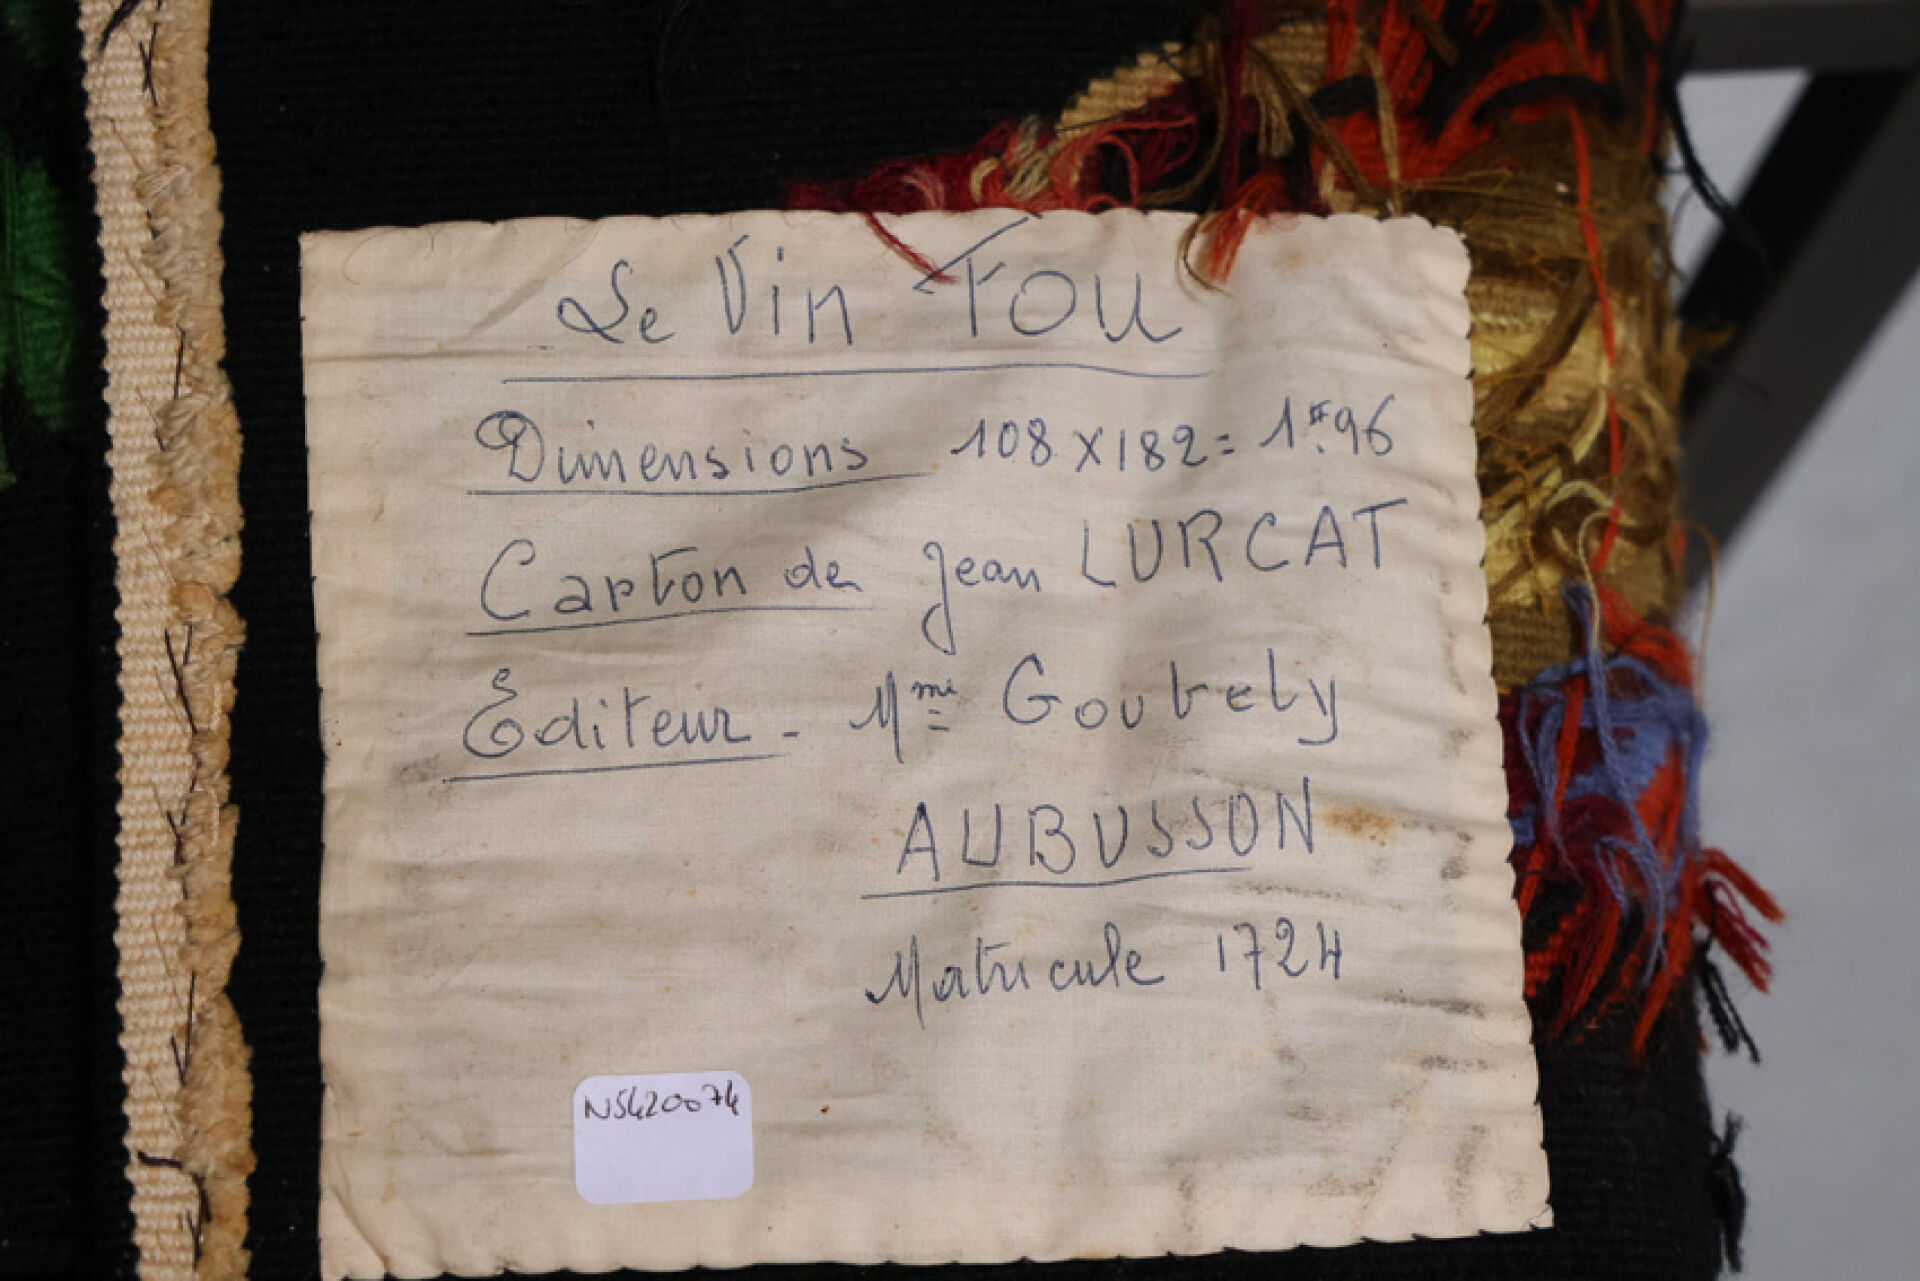 Le Vin FOU
Dimensions 108 X 182 = 1m.96
Carton de Jean LURCAT
Editeur - Mme Goubely
AUBUSSON
Matricule 1724
N5420074